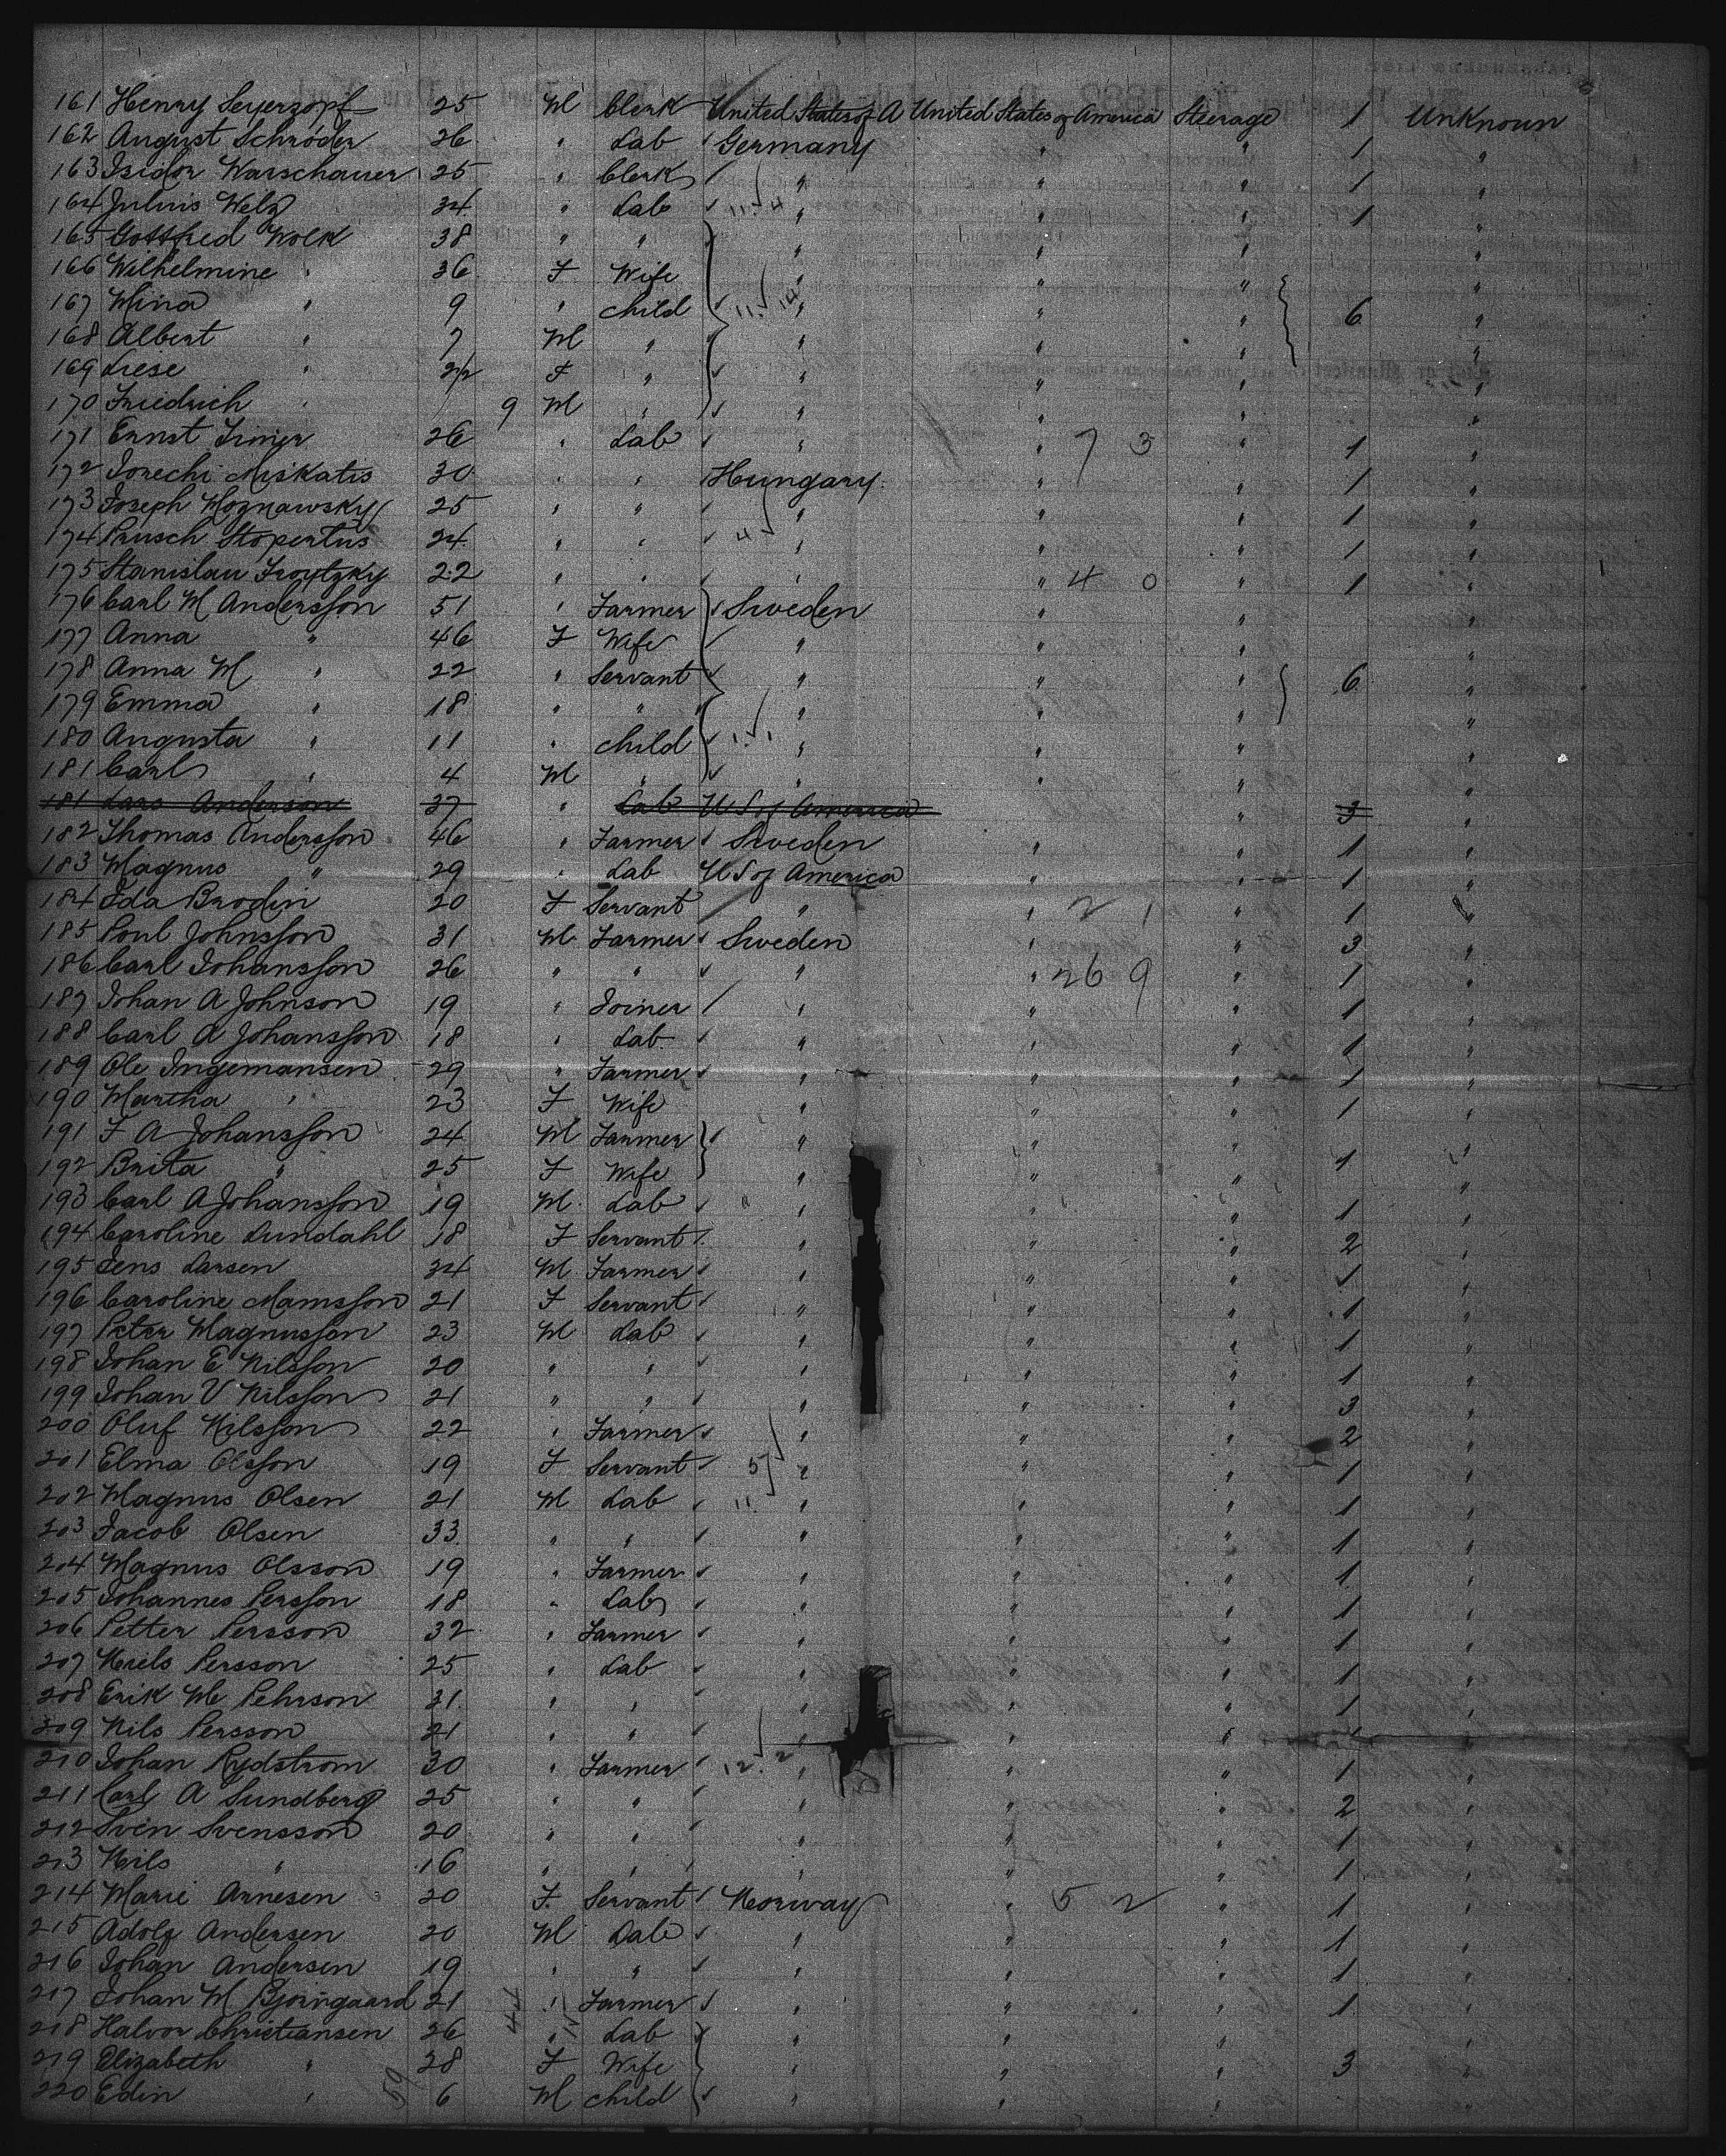 161 Henry Seyerzopf 25 M Clerk United States of A United States of America Steerage 1 Unknown
162 August Schröder 26 " Lab Germany " " 1 "
163 Isidor Warschauer 25 " Clerk " " " 1 "
164 Julius Welz 34 " Lab " " " 1 "
165 Gottfried Wolk 38 " " " " " "
166 Wilhelmine " 36 F Wife " " " "
167 Mina " 9 " child " " " 6 "
168 Albert " 7 M " " " " "
169 Liese " F " " " " "
170 Friedrich " 9 M " " " " "
171 Ernst 26 " Lab " " 7 3 " 1 "
172 Miskatis 30 " " Hungary " " 1 "
173 Joseph Woznawsky 25 " " " " " 1 "
174 Prusch Stopertus 24 " " " " " 1 "
175 Stanislau 22 " " " " 4 0 " 1 "
176 Carl M Andersson 51 " Farmer Sweden " " "
177 Anna " 46 F Wife " " " "
178 Anna M " 22 " Servant " " " 6 "
179 Emma " 18 " " " " " "
180 Augusta " 11 " child " " " "
181 Carl " 4 M " " " " "
181 Lars Anderson 37 " Lab U S of America " 3 "
182 Thomas Andersson 46 " Farmer Sweden " " 1 "
183 Magnus " 29 " Lab U S of America " " 1 "
184 Ida Brodin 20 F Servant " " 2 1 " 1 "
185 Poul Johnsson 31 M Farmer Sweden " " 3 "
186 Carl Johansson 26 " " " " 26 9 " 1 "
187 Johan A Johnson 19 " Joiner " " " 1 "
188 Carl A Johansson 18 " Lab " " " 1 "
189 Ole Ingemansen 29 " Farmer " " " 1 "
190 Martha " 23 F Wife " " " 1 "
191 F A Johansson 24 M Farmer " " " "
192 Brita " 25 F Wife " " " 1 "
193 Carl A Johansson 19 M Lab " " " 1 "
194 Caroline Lundahl 18 F Servant " " " 2 "
195 Jens Larsen 34 M Farmer " " " "
196 Caroline Mamsson 21 F Servant " " " 1 "
197 Peter Magnusson 23 M Lab " " " 1 "
198 Johan E Nilsson 20 " " " " " 1 "
199 Johan V Nilsson 21 " " " " " 3 "
200 Oluf Nilsson 22 " Farmer " " " 2 "
201 Elma Olsson 19 F Servant " " " 1 "
202 Magnus Olsen 21 M Lab " " " 1 "
203 Jacob Olsen 33 " " " " " 1 "
204 Magnus Olsson 19 " Farmer " " " 1 "
205 Johannes Persson 18 " Lab " " " 1 "
206 Petter Persson 32 " Farmer " " " 1 "
207 Niels Persson 25 " Lab " " " 1 "
208 Erik Pehrson 31 " " " " " 1 "
209 Nils Persson 21 " " " " " 1 "
210 Johan Rydstrom 30 " Farmer " " " 1 "
211 Carl A Sundberg 25 " " " " " 2 "
212 Sven Svensson 20 " " " " " 1 "
213 Nils " 16 " " " " " 1 "
214 Marie Arnesen 20 F Servant Norway " 5 2 " 1 "
215 Adolf Andersen 20 M Lab " " " 1 "
216 Johan Andersen 19 " " " " " 1 "
217 Johan M Bjorngaard 21 " Farmer " " " 1 "
218 Halvor Christiansen 26 " Lab " " " "
219 Elizabeth " 28 F Wife " " " 3 "
220 Edin " 6 M child " " " "